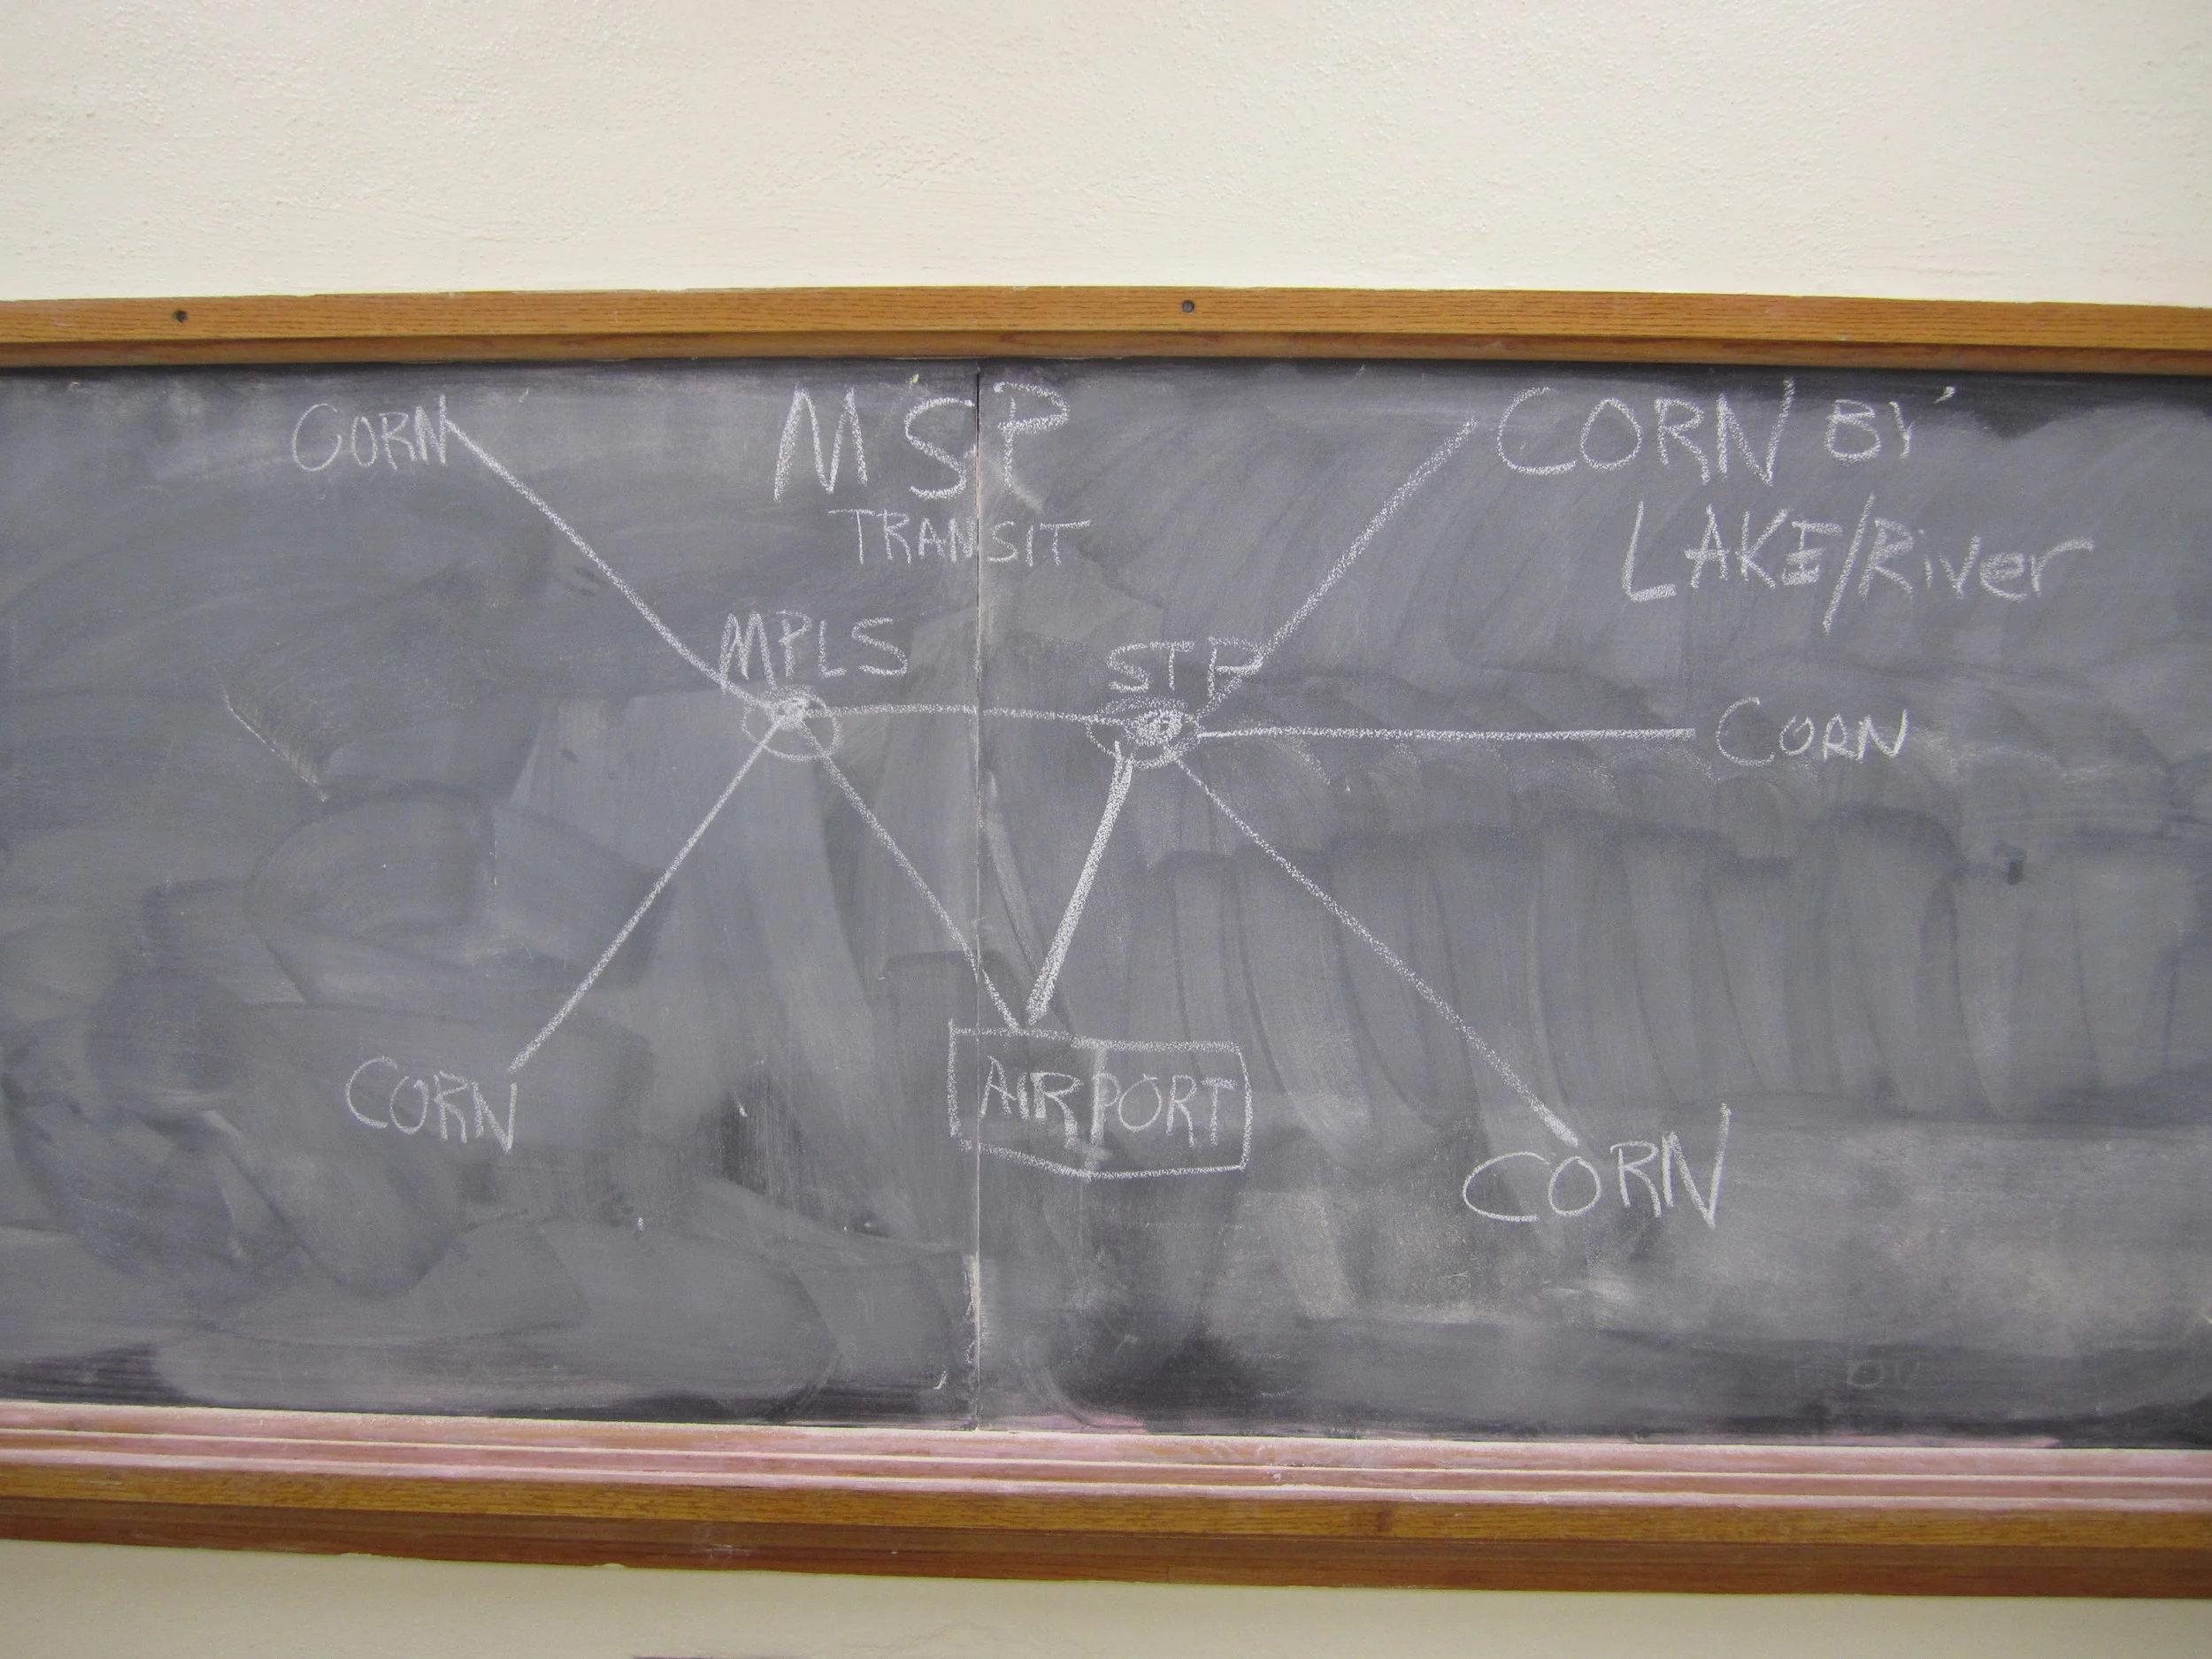 CORN
MSP
TRANSIT
CORN BY
LAKE/River
MPLS
STP
CORN
CORN
AIRPORT
CORN